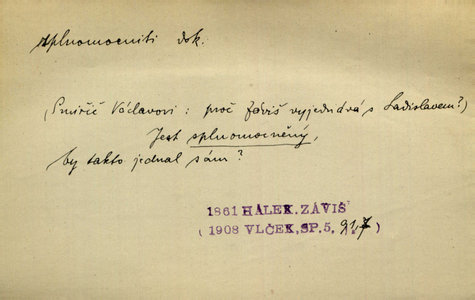 splnomocniti dok.
(Smiřič Václavovi : proč Záviš vyjednává s Ladislavem?)
Jest splnomocněný,
by takto jednal sám?
1861 HÁLEK. ZÁVIŠ
( 1908 VLČEK, SP. 5. 217 )